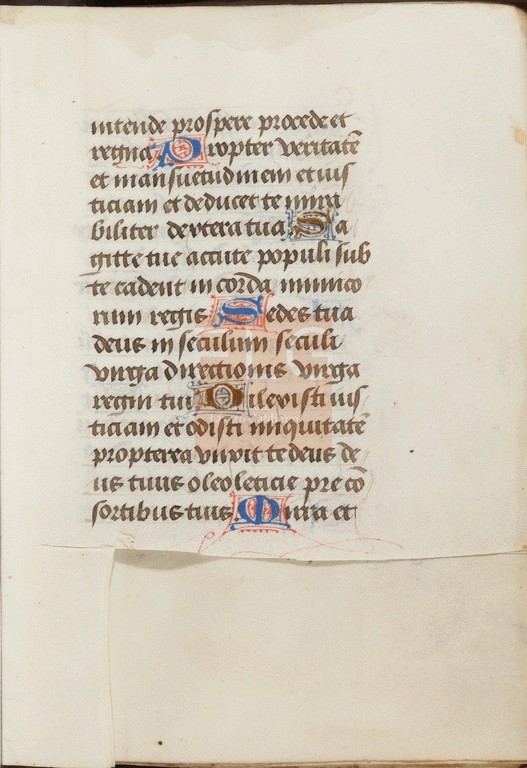 intende prospere procede et
regna Propter veritatē
et mansuetudinem et ius
ticiam et deducet te mira
biliter dextera tua Sa
gitte tue accute populi sub
te cadent in corda inimico
rum regis Sedes tua
deus in seculum seculi
virga directionis virga
regni tui Dilexisti ius
ticiam et odisti iniquitatē
propterea vnxit te deus de
us tuus oleo leticie pre cō
sortibus tuis Mirra et